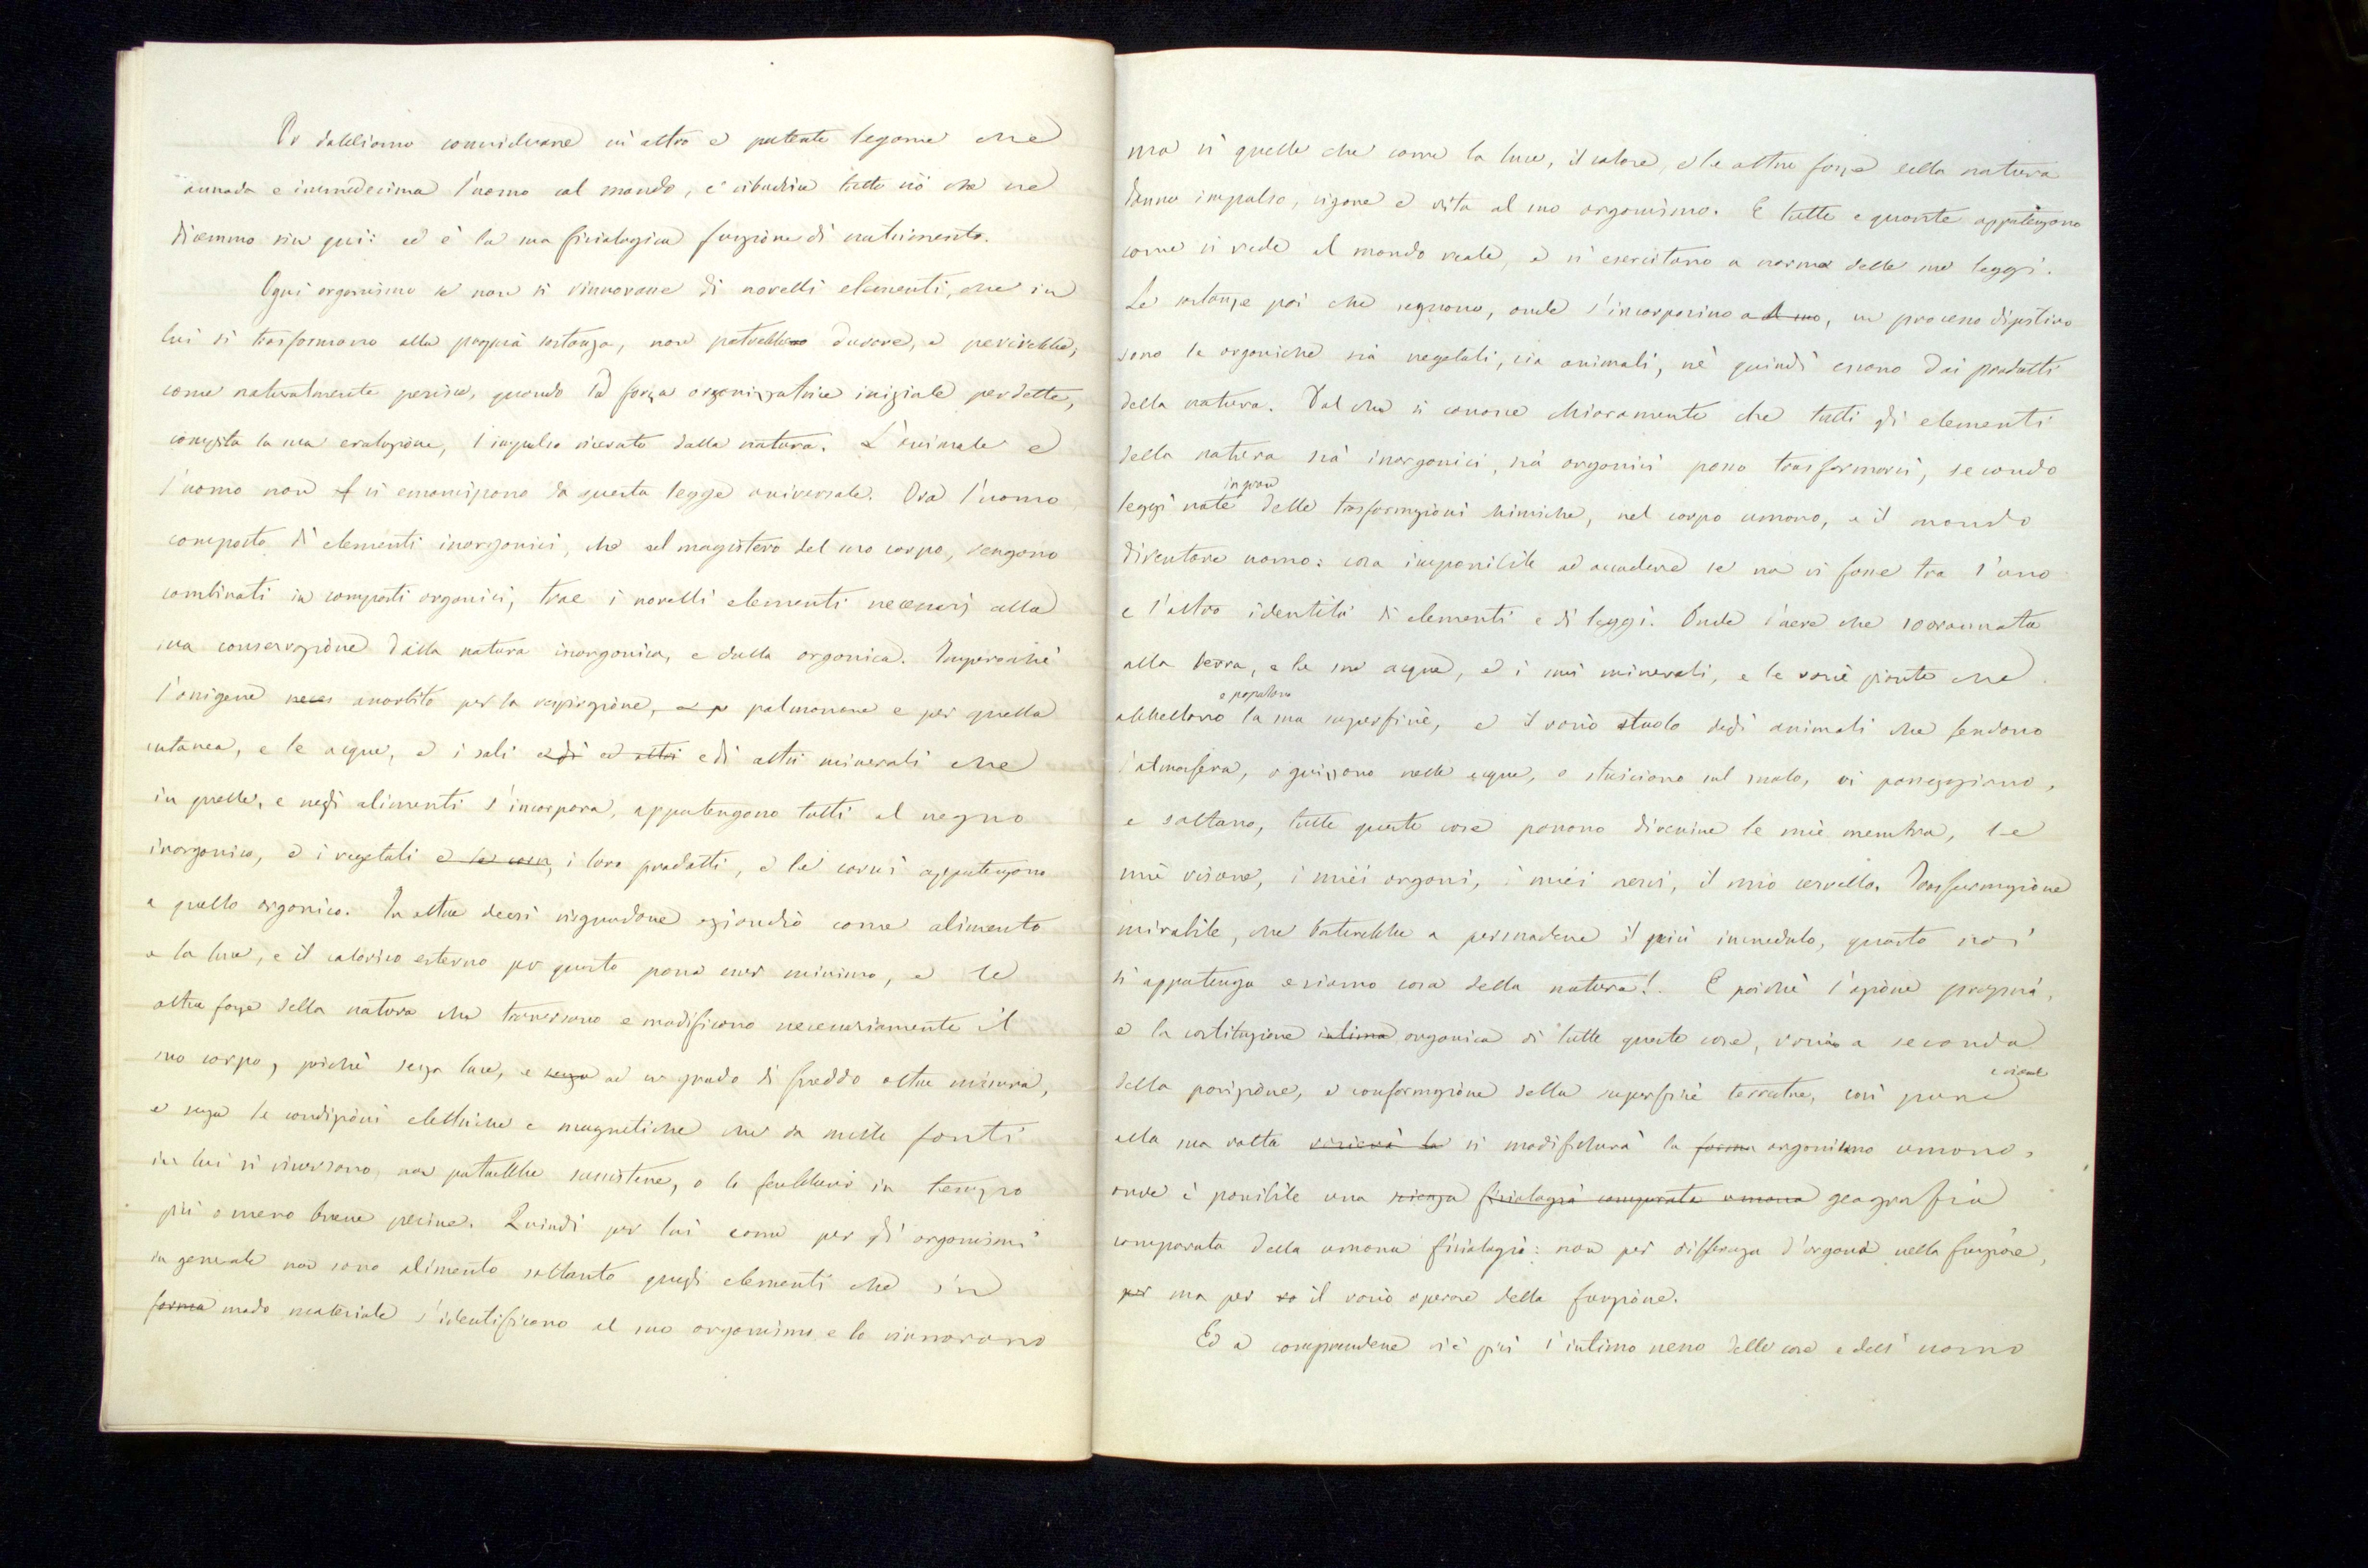 Or dobbiamo considerare un altro e potente legame che
annoda e immedesima l'uomo col mondo, e ribadisce tutto ciò che ne
dicemmo sin qui: ed è la sua fisiologica funzione di nutrimento.
Ogni organismo se non si rinnovasse di novelli elementi, che in
lui si trasformano alla propria sostanza, non potrebbe durare, e perirebbe,
come naturalmente perisce, quando la forza organizzatrice iniziale perdette,
compita la sua evoluzione, l'impulso ricevuto dalla natura. L'animale e
l'uomo non si emancipano da questa legge universale. Ora l'uomo
composto di elementi inorganici, che al magistero del suo corpo, vengono
combinati in composti organici, trae i novelli elementi necessarj alla
sua conservazione dalla natura inorganica, e dalla organica. Imperocchè
l'ossigene neces assorbito per la respirazione, e p polmonare e per quella
cutanea, e le acque, e i sali e di ed altri e di altri minerali che
in quelle, e negli alimenti s'incorpora, appartengono tutti al regno
inorganico, e i vegetali e le carn, i loro prodotti, e le carni appartengono
a quello organico. In oltre deesi risguardare eziandio come alimento
e la luce, e il calorico esterno per quanto possa esser minimo, e le
altre forze della natura che traversano e modificano necessariamente il
suo corpo, poichè senza luce, e senza ad un grado di freddo oltre misura,
e senza le condizioni elettriche e magnetiche che da mille fonti
in lui si riversano, non potrebbe sussistere, o lo farebbe in tempo
più o meno breve perire. Quindi per lui come per gli organismi
in generale non sono alimento soltanto quegli elementi che in
forma modo materiale s'identificano al suo organismo e lo rinnovano
ma sì quelle che come la luce, il calore, e le altre forze della natura
danno impulso, vigore e vita al suo organismo. E tutte e quante appartengono
come si vede al mondo reale, e si esercitano a norma delle sue leggi.
Le sostanze poi che seguono, onde s'incorporino a d suo, un processo digestivo
sono le organiche sia vegetali, sia animali, nè quindi escono dai prodotti
della natura. Dal che si conosce chiaramente che tutti gli elementi
della natura sia inorganici, sia organici posson trasformarsi, secondo
in poca
leggi note delle trasformazioni chimiche, nel corpo umano, e il mondo
diventare uomo: cosa impossibile ad accadere se non vi fosse tra l'uno
e l'altro identità di elementi e di leggi. Onde l'aere che sovrannota
alla terra, e le sue acque, e i suoi minerali, e le varie piante che
e popolano
abbellano la sua superficie, e il vario stuolo degli animali che fendono
l'atmosfera, o guizzano nelle acque, o strisciano sul suolo, vi passeggiano,
e saltano, tutte queste cose possono divenire le mie membra, le
mie viscere, i miei organi, i miei nervi, il mio cervello. Trasformazione
mirabile, che basterebbe a persuadere il più incredulo, quanto noi
si appartenga e siamo cosa della natura!. E poichè l'azione propria,
e la costituzione intima organica di tutte queste cose, varia a seconda
della posizione, e conformazione della superficie terrestre, così pure
alla sua volta varierà la si modificherà la forma organismo umano,
onde è possibile una scienza fisiologia comparata umana geografia
comparata della umana fisiologia: non per differenza d'organi nella funzione,
per ma per va il vario operare della funzione.
Ed a comprendere vie più l'intimo nesso delle cose e dell'uomo